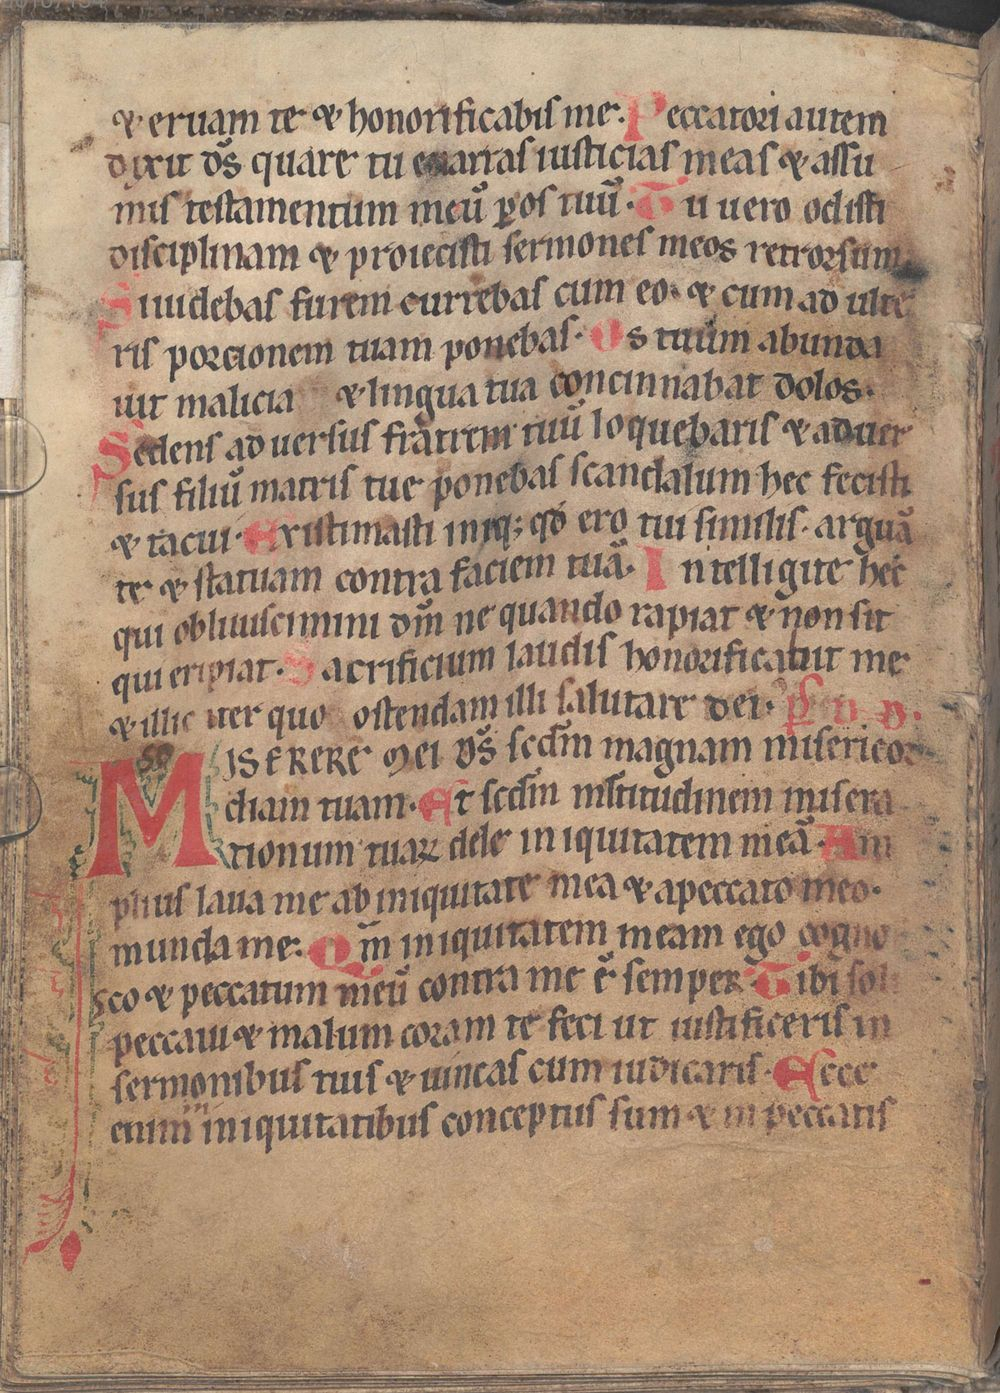 & eruam te & honorificabis me. Peccatori autem
dixit ds̄ quare tu enarras iusticias meas & assu
mis testamentum meū ꝑ os tuū. Tu uero odisti
disciplinam & proiecisti sermones meos retrorsum
Si uidebas furem currebas cum eo. & cum adulte
ris porcionem tuam ponebas. Os tuum abunda
uit malicia & lingua tua concinnabat dolos.
Sedens aduersus fratrem tuū loquebaris & aduer
sus filiū matris tue ponebas scandalum hec fecisti
& tacui. Existimasti iniq; qd̄ ero tui similis. arguā
te & statuam contra faciem tuā. Intelligite hec
qui obliuiscimini dm̄ ne quando rapiat & non sit
qui eripiat. Sacrificium laudis honorificabit me
& illic iter quo ostendam illi salutare dei. ps̄ D D.
50
MISERERE Mei ds̄ scdm̄ magnam misericor
diam tuam. Et scdm̄ multitudinem misera
tionum tuaꝝ dele iniquitatem meā. Am
plius laua me ab iniquitate mea & a peccato meo.
munda me. Qm̄ iniquitatem meam ego cogno
sco & peccatum meū contra me ē semper. Tibi soli
peccaui & malum coram te feci ut iustificeris in
sermonibus tuis & uincas cum iudicaris. Ecce
enim in iniquitatibus conceptus sum & in peccatis